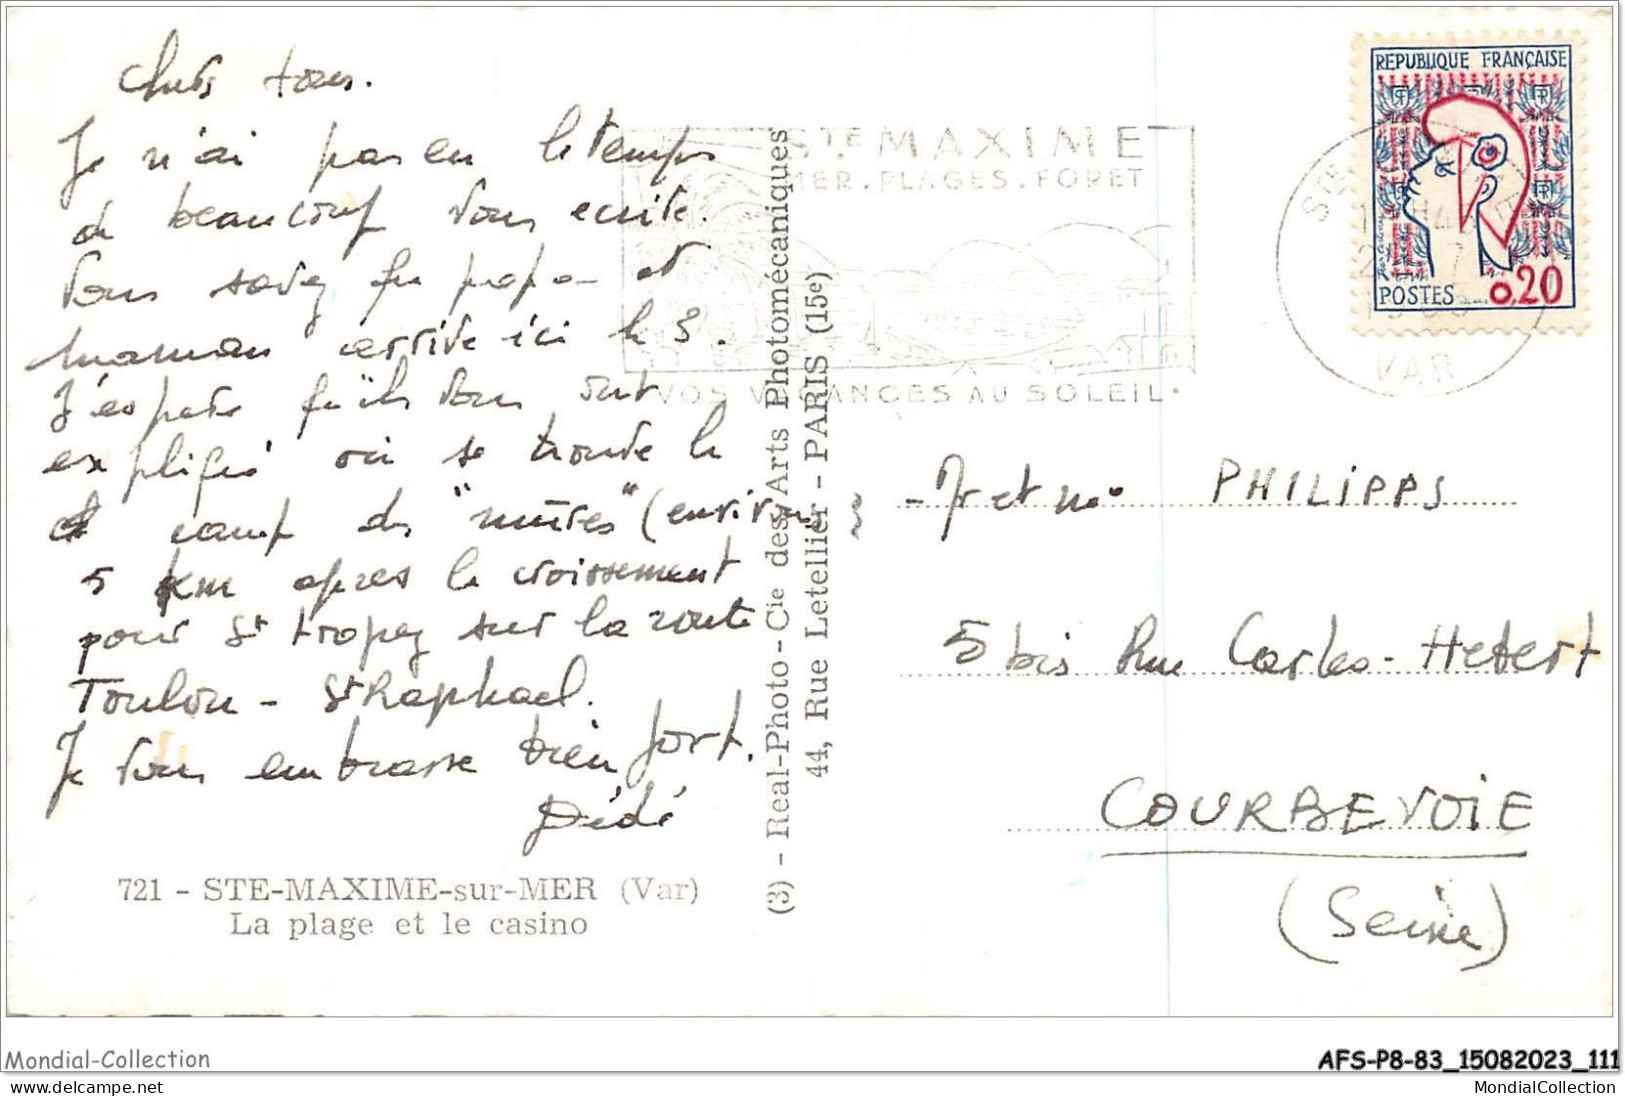 Chers tous.
Je n'ai pas eu le temps
de beaucoup vous ecrire.
Vous savez que papa et
maman arrive ici le 3.
J'espere qu'ils vous ont
expliqué où se trouve le
camp des "mûres" (environ
5 km apres le croissement
pour St tropez sur la route
Toulon - St Raphael.
Je vous embrasse bien fort.
Dédé
721 - STE-MAXIME-sur-MER (Var)
La plage et le casino
(3) - Real-Photo - Cie des Arts Photomécaniques
44, Rue Letellier - PARIS (15e)
STE MAXIME
MER. PLAGES. FORET
VOS VACANCES AU SOLEIL.
REPUBLIQUE FRANÇAISE
POSTES 0,20
VAR
Mr et Me PHILIPPS
5 bis Rue Carles-Hebert
COURBEVOIE
(Seine)
Mondial-Collection
AFS-P8-83_15082023_111
MondialCollection